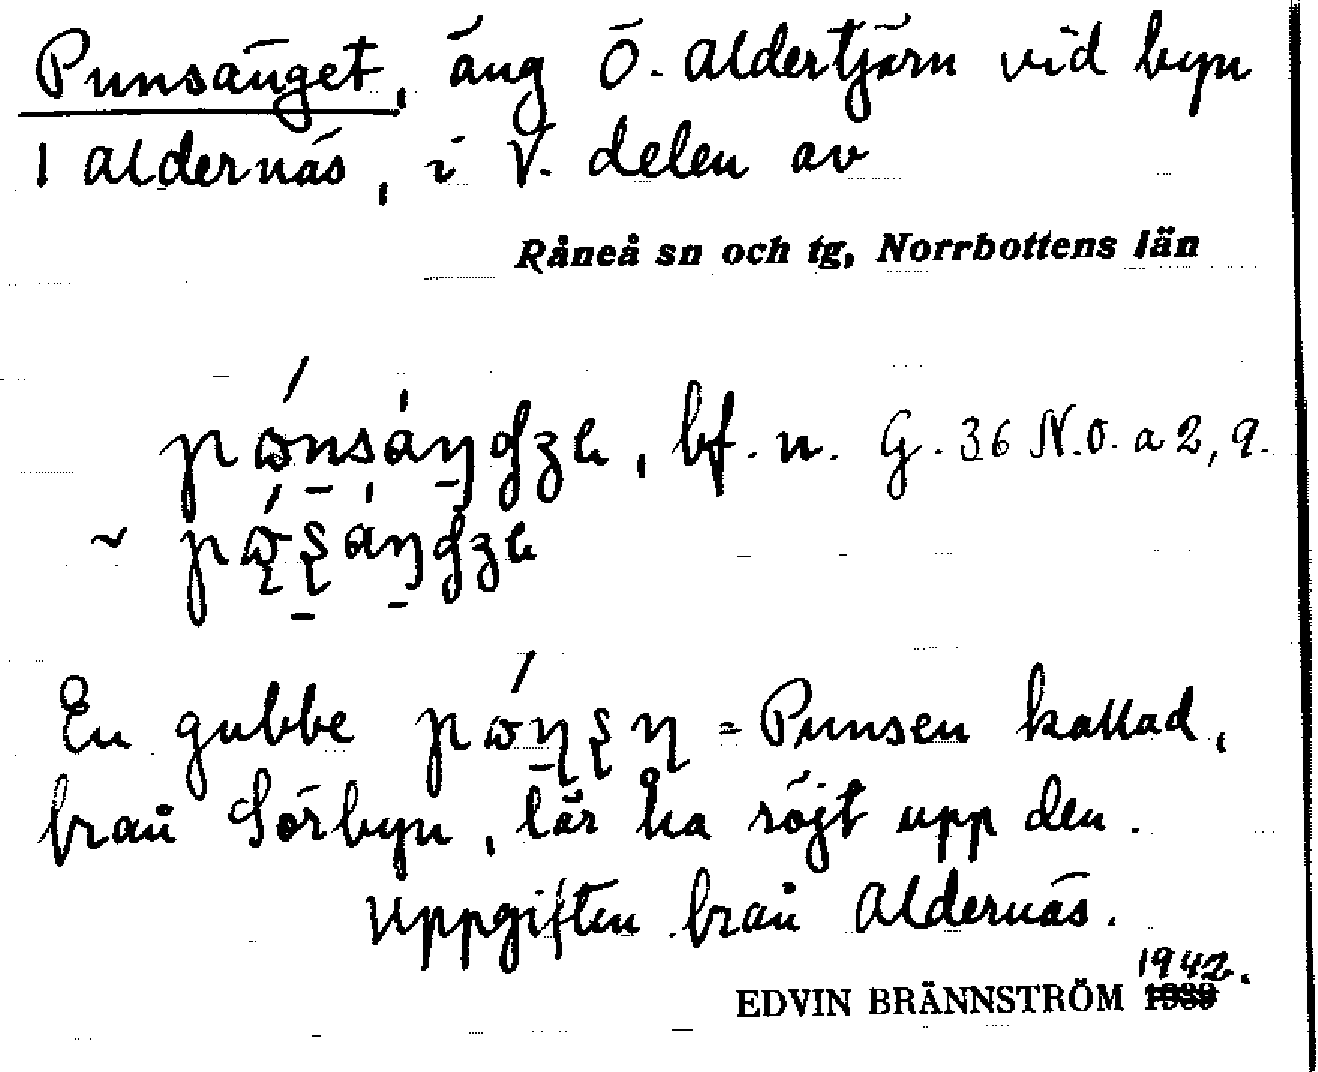 Punsänget, äng Ö. Aldertjärn vid byn
1 Aldernäs, i V. delen av
Råneå sn och tg, Norrbottens län
bf. n. G. 36 N.O. a 2, 9.
~
En gubbe = Punsen kallad,
från Sörbyn, lär ha röjt upp den.
Uppgiften från Aldernäs.
1942.
EDVIN BRÄNNSTRÖM 1939